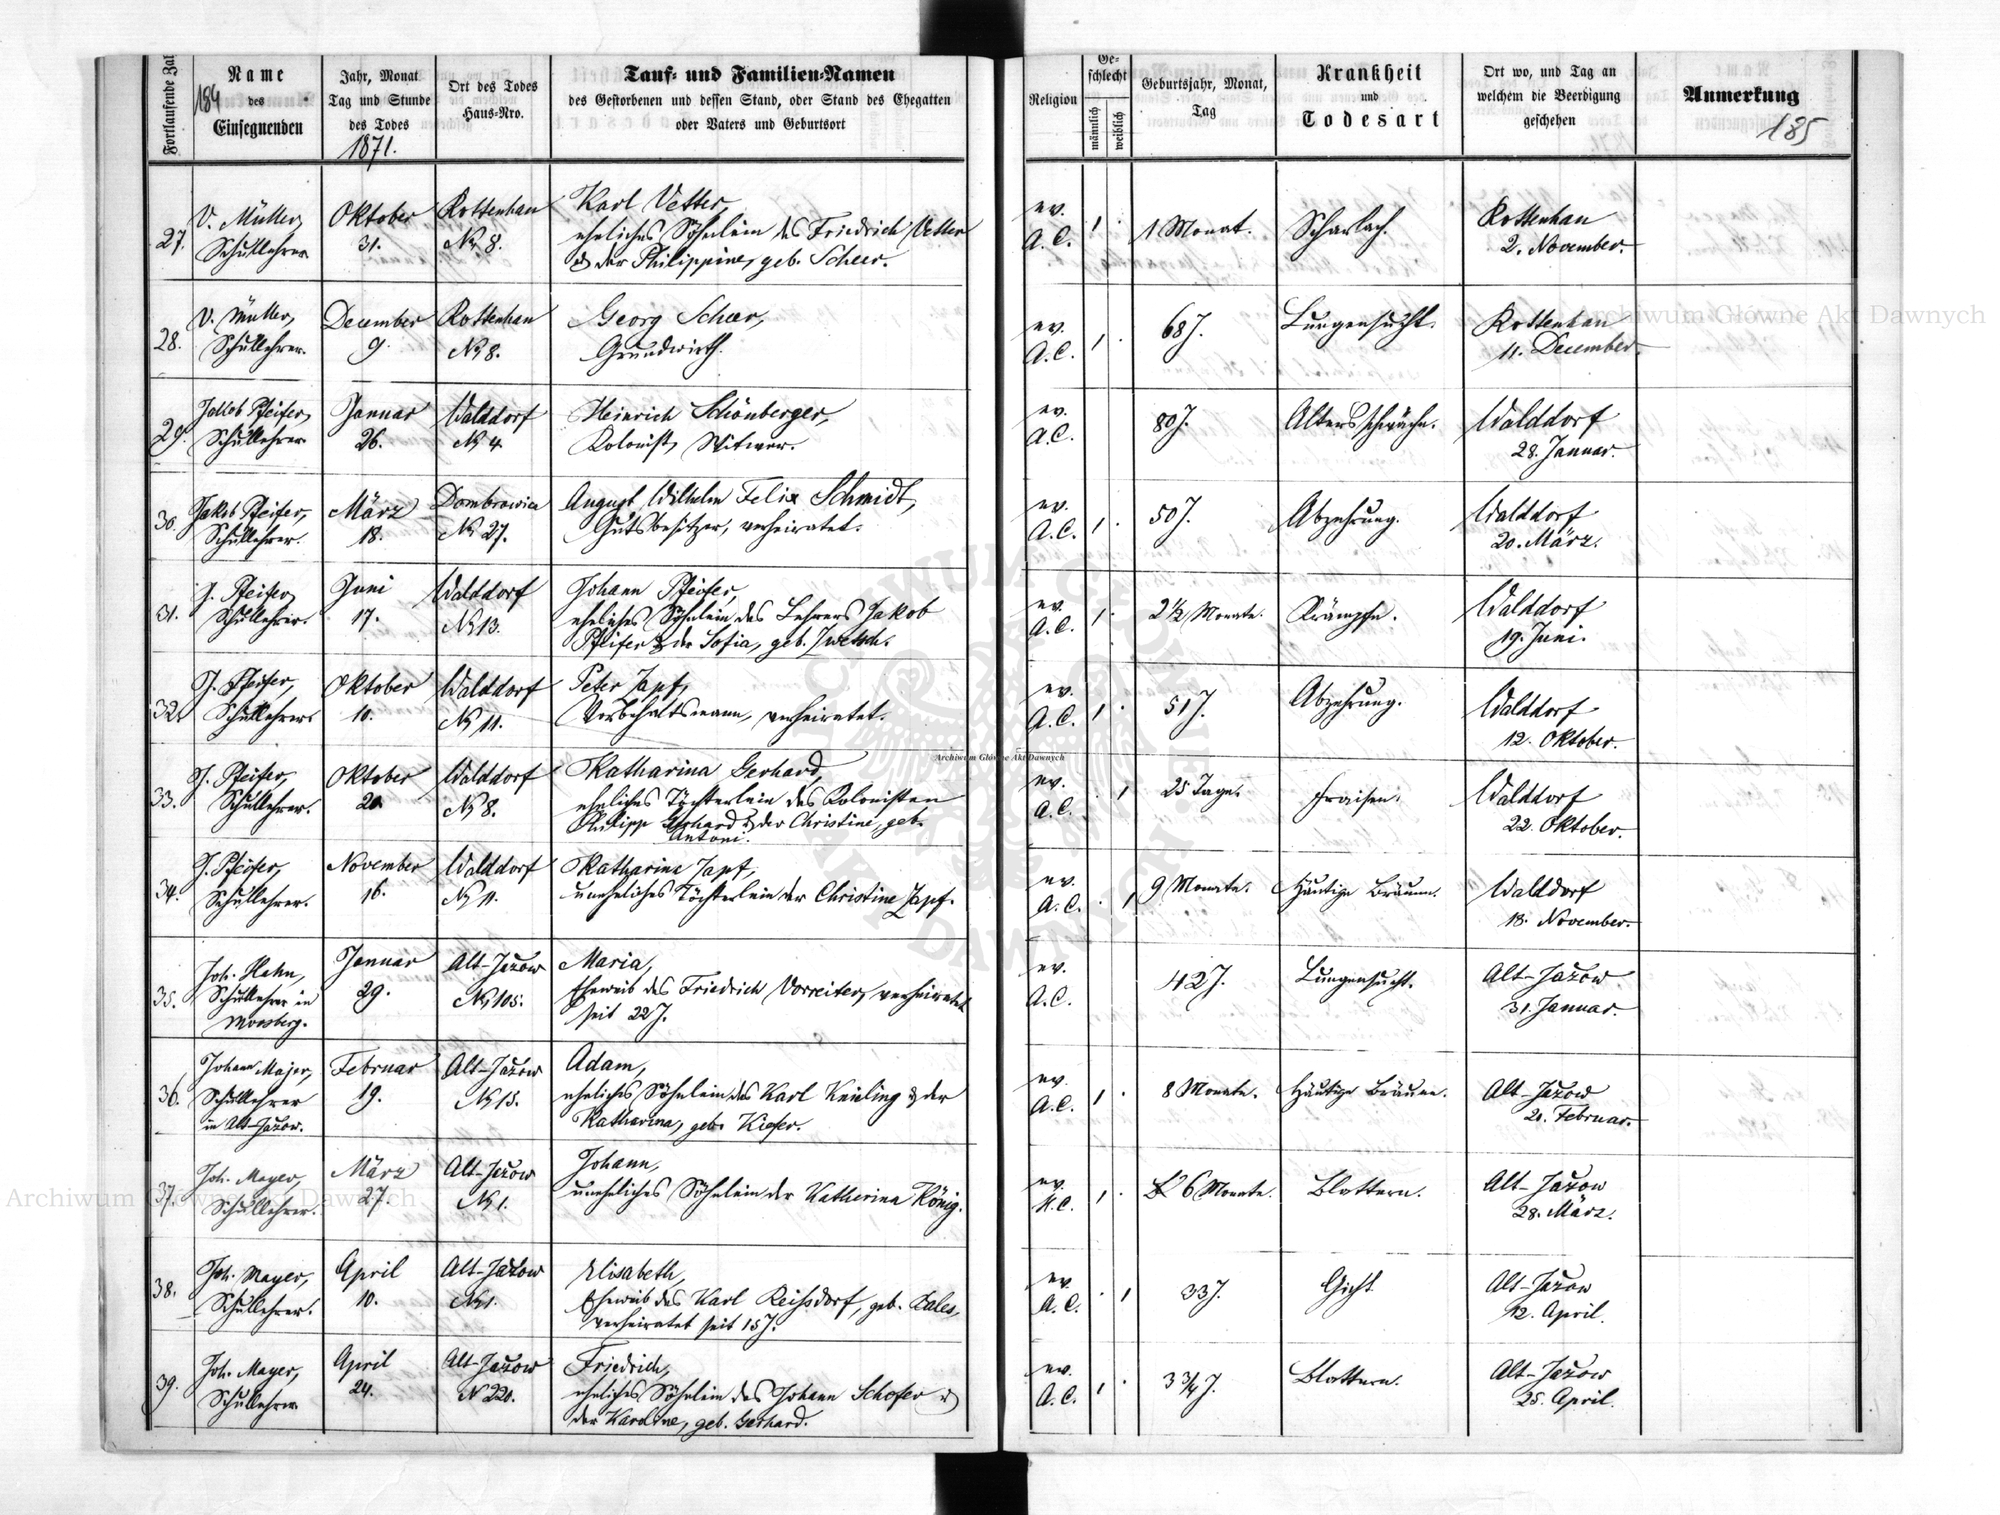 184
Fortlaufende Zal
Name
des
Einsegnenden
Jahr, Monat
Tag und Stunde
des Todes
1871.
Ort des Todes
Haus-Nro.
Tauf- und Familien-Namen
des Gestorbenen und dessen Stand, oder Stand des Ehegatten
oder Vaters und Geburtsort
Religion
Ge-
schlecht
männlich
weiblich
Geburtsjahr, Monat,
Tag
Krankheit
und
Todesart
Ort wo, und Tag an
welchem die Beerdigung
geschehen
Anmerkung
185
27.
V. Müller,
Schullehrer
Oktober
31.
Rottenhan
No 8.
Karl Vetter,
eheliches Söhnlein des Friedrich Vetter
& der Philippine, geb. Scheer.
ev.
A.C.
1 .
1 Monat.
Scharlach.
Rottenhan
2. November.
28.
V. Müller,
Schullehrer.
December
9.
Rottenhan
No 8.
Georg Scheer,
Grundwirth.
ev.
A.C.
1 .
68 J.
Lungensucht.
Rottenhan
11. December.
29.
Jakob Pfeifer,
Schullehrer
Januar
26.
Walddorf
No 4.
Heinrich Schönberger,
Kolonist, Witwer.
ev.
A.C.
80 J.
Altersschwäche.
Walddorf
28. Januar.
30.
Jakob Pfeifer,
Schullehrer.
März
18.
Dombrowica
No 27.
August Wilhelm Felix Schmidt,
Gutsbesitzer, verheiratet.
ev.
A.C.
1 .
50 J.
Abzehrung.
Walddorf
20. März.
31.
J. Pfeifer,
Schullehrer.
Juni
17.
Walddorf
No 13.
Johann Pfeifer,
eheliches Söhnlein des Lehrers Jakob
Pfeifer & der Sofia, geb. Zwetsch.
ev.
A.C.
1 .
2 1/2 Monate.
Krämpfe.
Walddorf
19. Juni.
32.
J. Pfeifer,
Schullehrer
Oktober
10.
Walddorf
No 11.
Peter Zapf,
Vorbehaltsmann, verheiratet.
ev.
A.C.
1 .
51 J.
Abzehrung.
Walddorf
12. Oktober.
33.
J. Pfeifer,
Schullehrer.
Oktober
20.
Walddorf
No 8.
Katharina Gerhard,
eheliches Töchterlein des Kolonisten
Philipp Gerhard & der Christine, geb.
Antoni.
ev.
A.C.
. 1
25 Tage.
Fraisen.
Walddorf
22. Oktober.
34.
J. Pfeifer,
Schullehrer.
November
16.
Walddorf
No 11.
Katharina Zapf,
uneheliches Töchterlein der Christine Zapf.
ev.
A.C.
. 1
9 Monate.
Häutige Bräune.
Walddorf
18. November.
35.
Joh. Hahn,
Schullehrer in
Moosberg.
Januar
29.
Alt-Jazow
No 105.
Maria,
Eheweib des Friedrich Vorreiter, verheiratet
seit 22 J.
ev.
A.C.
42 J.
Lungensucht.
Alt-Jazow
31. Januar.
36.
Johann Majer,
Schullehrer
in Alt-Jazow.
Februar
19.
Alt-Jazow
No 15.
Adam,
eheliches Söhnlein des Karl Knieling & der
Katharina, geb. Kiefer.
ev.
A.C.
1 .
8 Monate.
Häutige Bräune.
Alt-Jazow
20. Februar.
37.
Joh. Mayer,
Schullehrer.
März
27.
Alt-Jazow
No 1.
Johann,
uneheliches Söhnlein der Katharina König.
ev.
A.C.
1 .
6 Monate.
Blattern.
Alt-Jazow
28. März.
38.
Joh. Mayer,
Schullehrer.
April
10.
Alt-Jazow
No 1.
Elisabeth,
Eheweib des Karl Reihsdorf, geb. Bales,
verheiratet seit 15 J.
ev.
A.C.
. 1
33 J.
Gicht
Alt-Jazow
12. April.
39.
Joh. Mayer,
Schullehrer
April
24.
Alt-Jazow
N 220.
Friedrich,
eheliches Söhnlein des Johann Schofer &
der Karoline, geb. Gerhard.
ev.
A.C.
1 .
3 3/4 J.
Blattern.
Alt-Jazow
25. April.
Archiwum Główne Akt Dawnych
Archiwum Główne Akt Dawnych
Archiwum Główne Akt Dawnych
ARCHIWUM GŁÓWNE AKT DAWNYCH